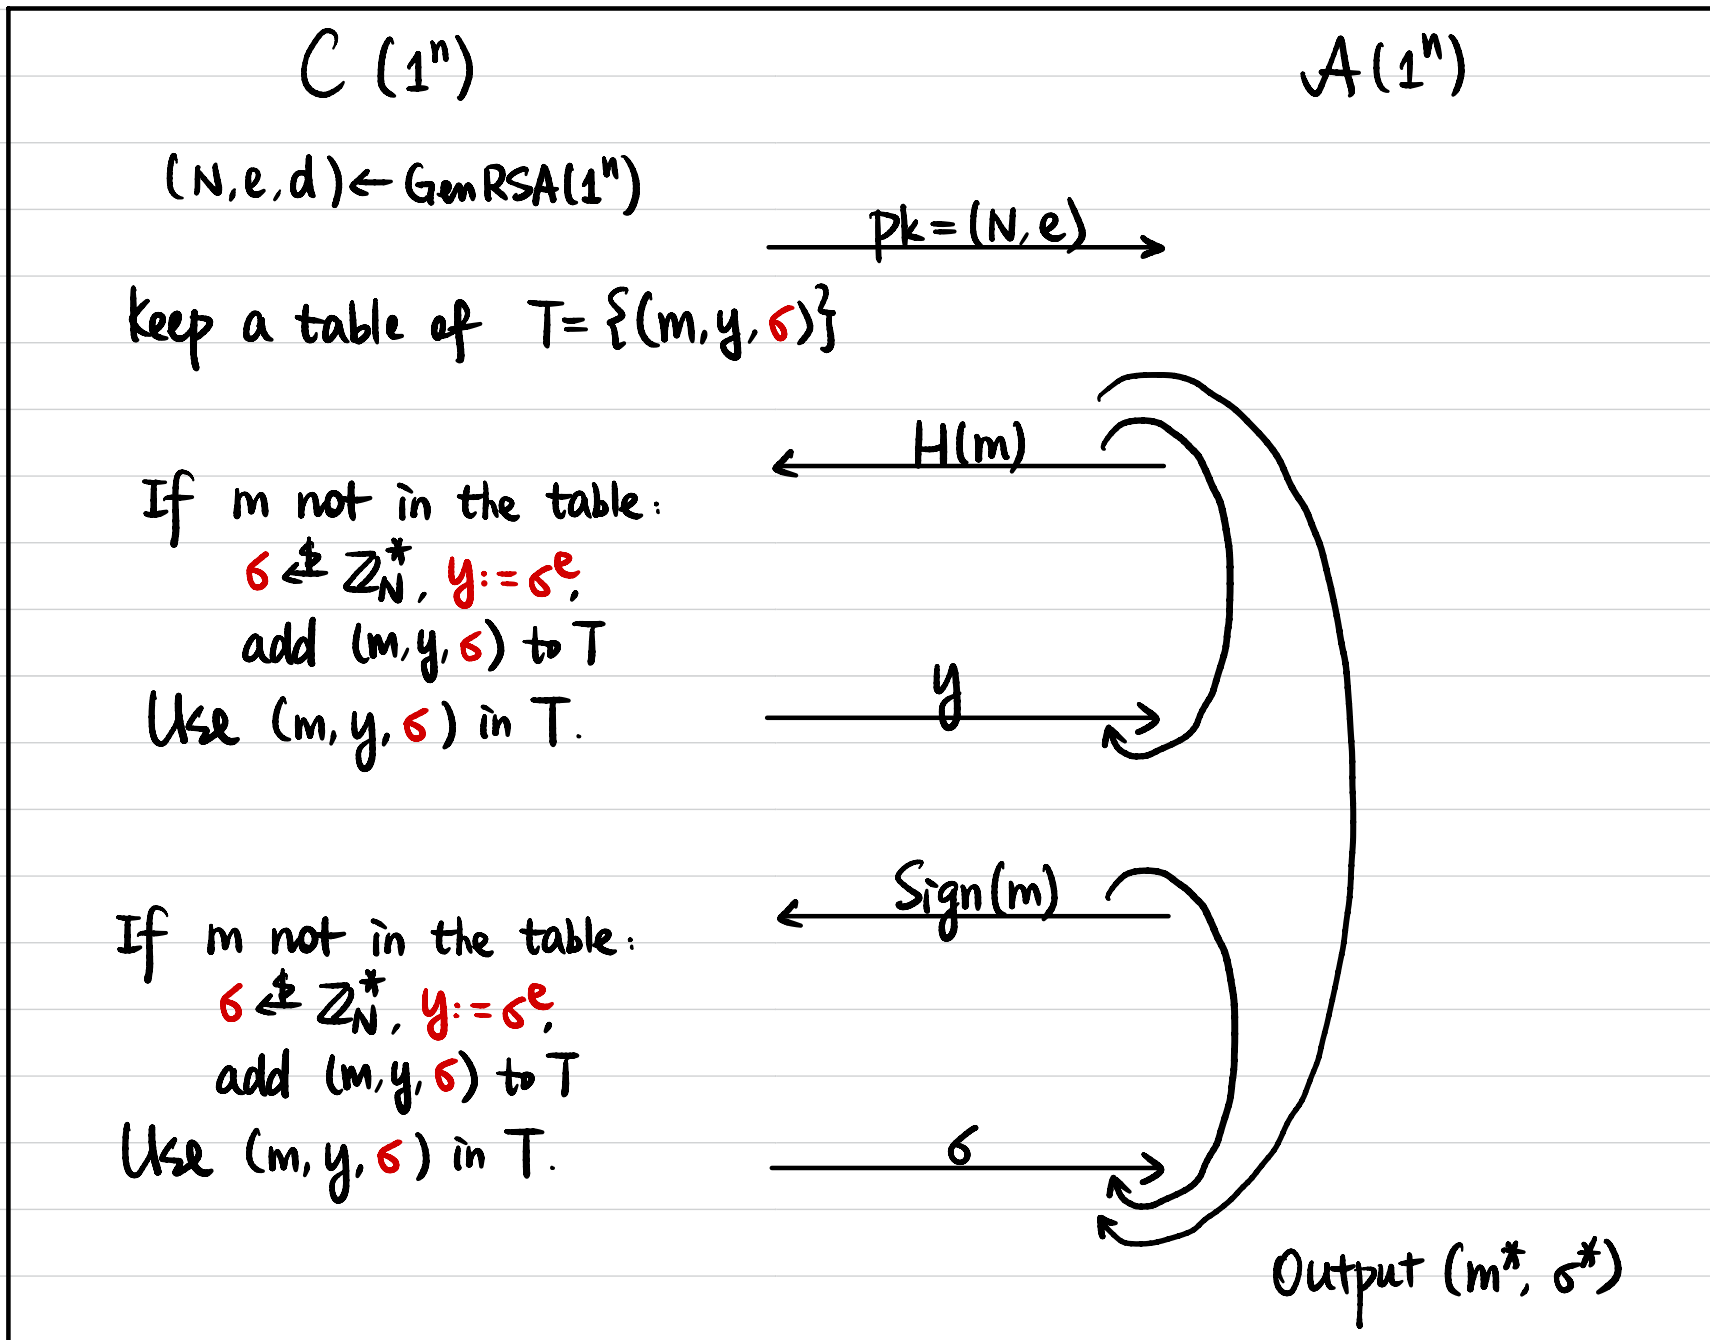 C (1ⁿ)
A (1ⁿ)
(N, e, d) ← GenRSA(1ⁿ)
pk = (N, e)
Keep a table of T = {(m, y, σ)}
H(m)
If m not in the table:
σ ←$ ℤ_N^*, y := σ^e,
add (m, y, σ) to T
Use (m, y, σ) in T.
y
Sign(m)
If m not in the table:
σ ←$ ℤ_N^*, y := σ^e,
add (m, y, σ) to T
Use (m, y, σ) in T.
σ
Output (m*, σ*)